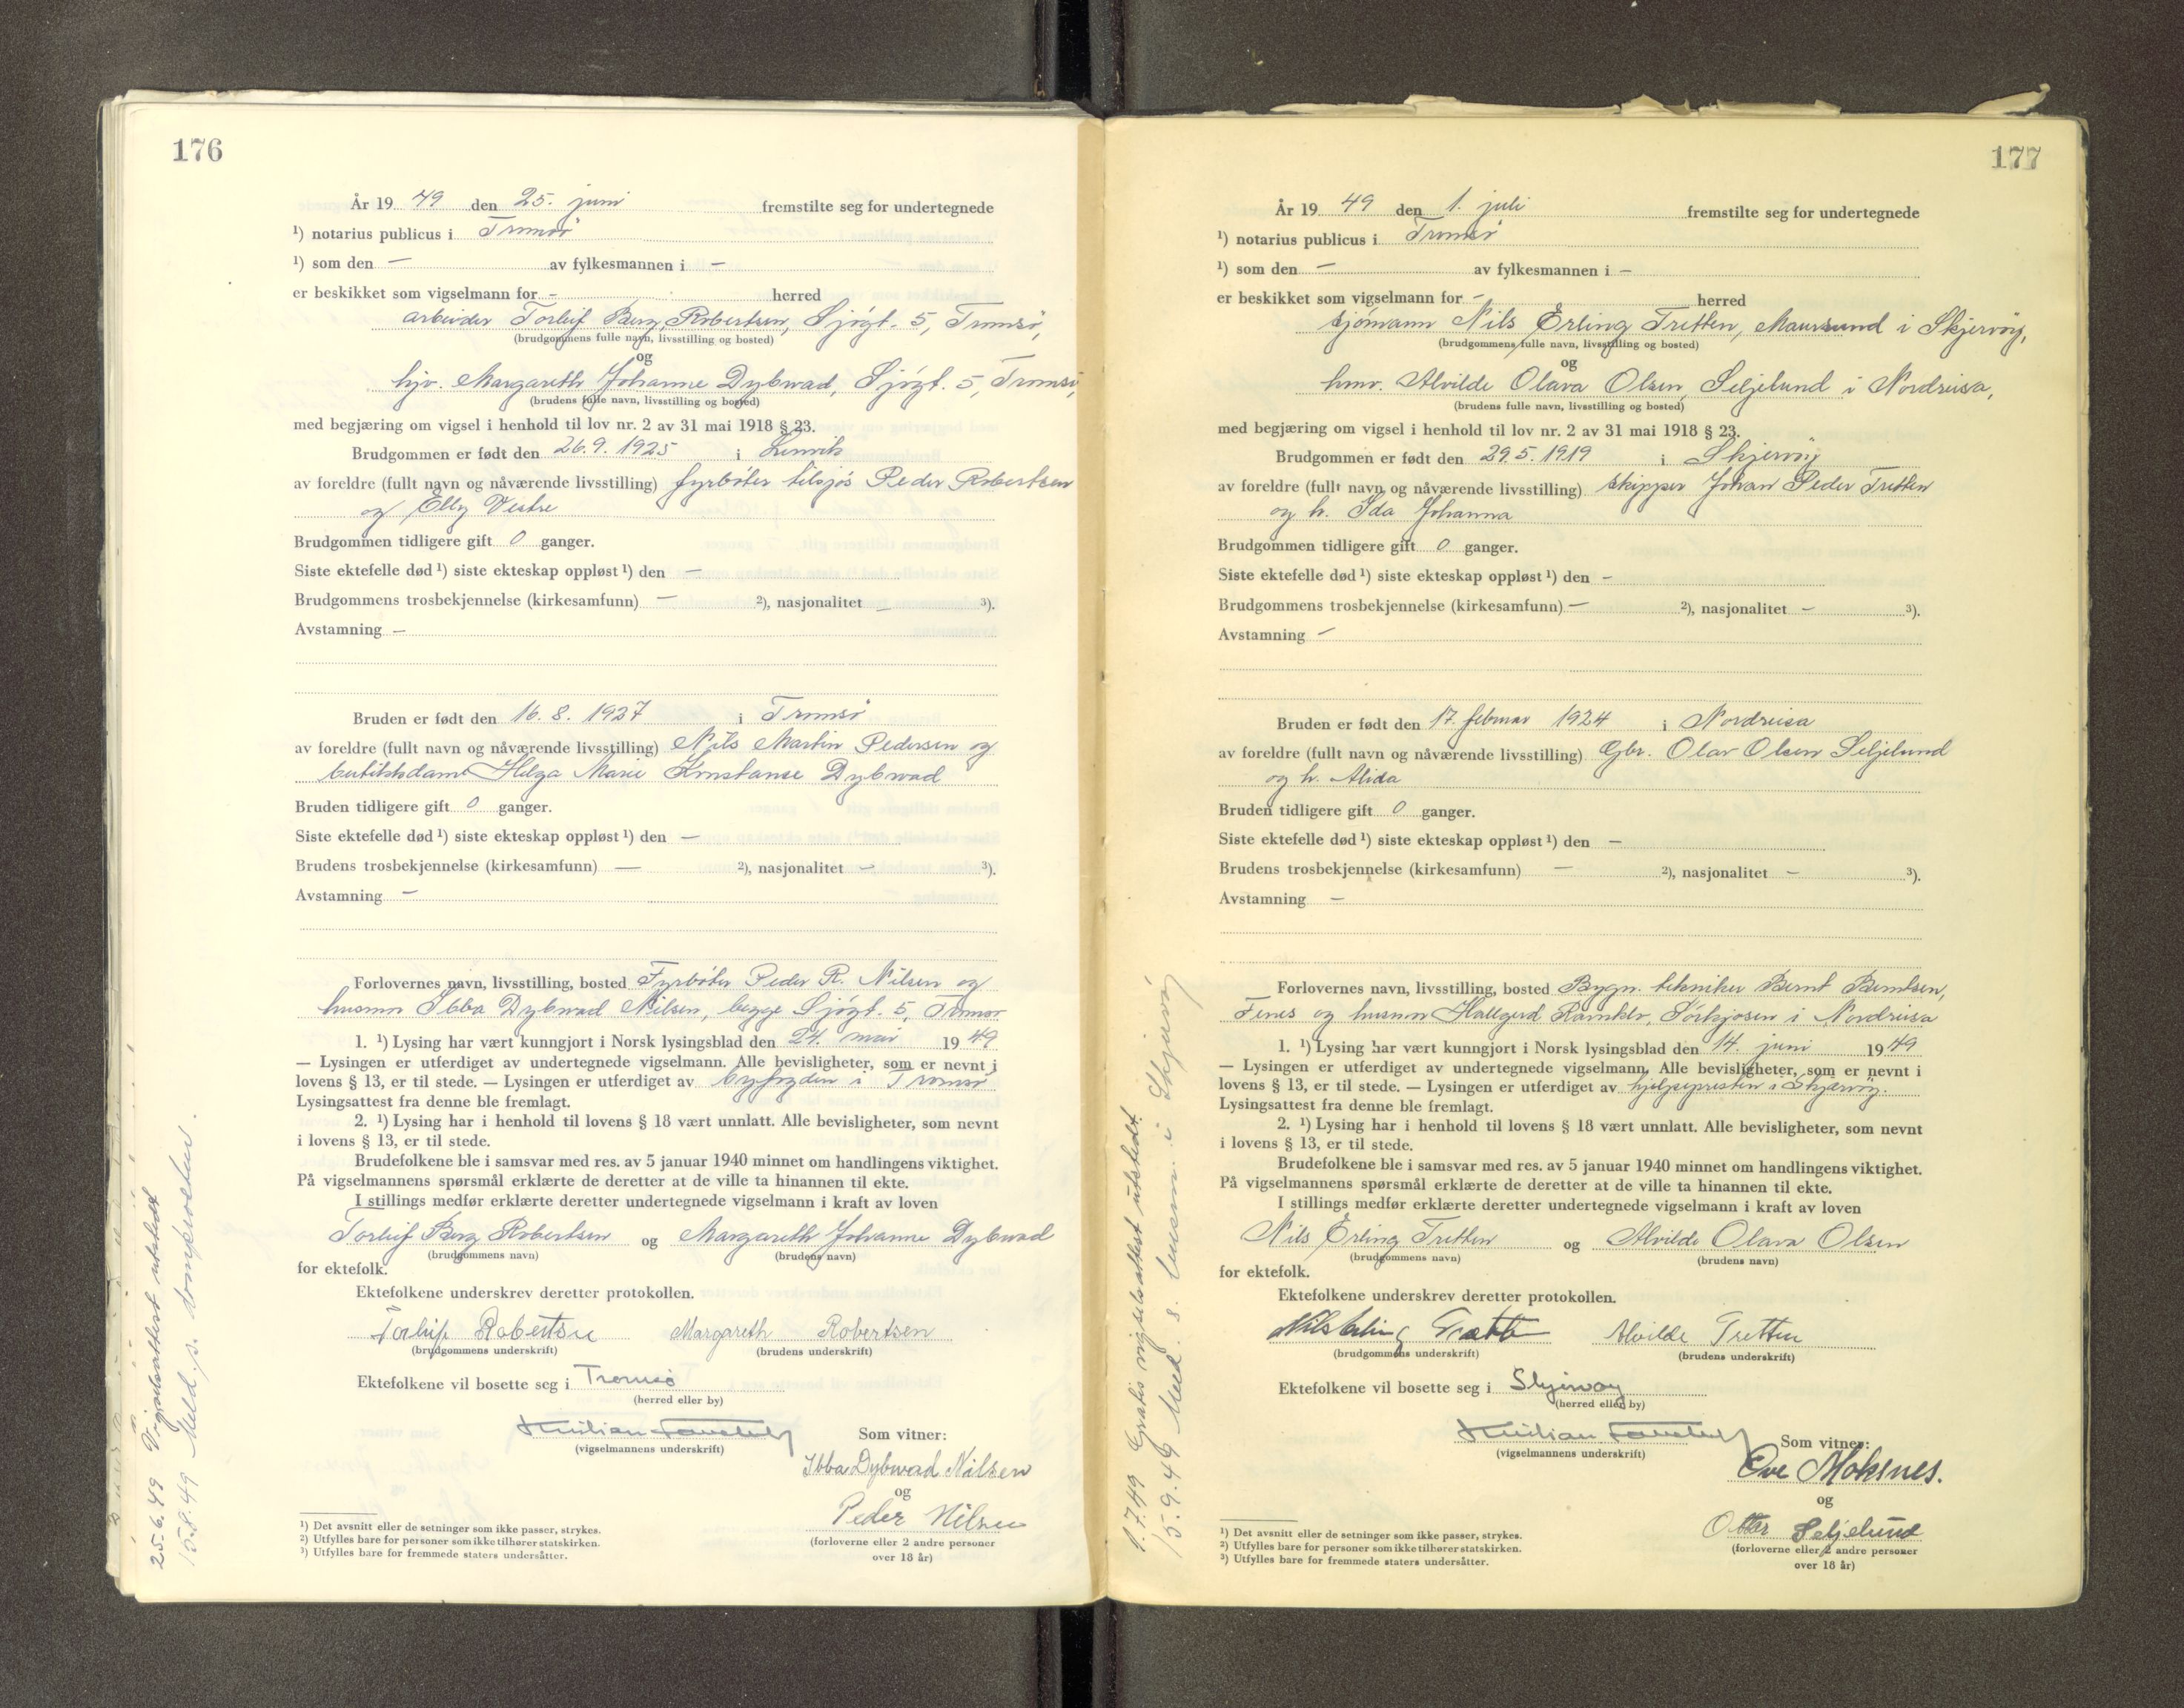 176
År 19 49 den 25. juni fremstilte seg for undertegnede
¹) notarius publicus i Tromsö
¹) som den — av fylkesmannen i —
er beskikket som vigselmann for - herred
arbeider Torleif Berg Robertsen, Sjögt. 5, Tromsö,
(brudgommens fulle navn, livsstilling og bosted)
og
hjv. Margareth Johanne Dybwad, Sjögt. 5, Tromsö,
(brudens fulle navn, livsstilling og bosted)
med begjæring om vigsel i henhold til lov nr. 2 av 31 mai 1918 § 23.
Brudgommen er født den 26.9.1925 i Lenvik
av foreldre (fullt navn og nåværende livsstilling) fyrböter tilsjös Peder Robertsen
og Elly Vestre
Brudgommen tidligere gift 0 ganger.
Siste ektefelle død ¹) siste ekteskap oppløst ¹) den —
Brudgommens trosbekjennelse (kirkesamfunn) — ²), nasjonalitet — ³).
Avstamning —
Bruden er født den 16.8.1927 i Tromsö
av foreldre (fullt navn og nåværende livsstilling) Nils Martin Pedersen og
butikkdame Helga Marie Konstanse Dybwad
Bruden tidligere gift 0 ganger.
Siste ektefelle død ¹) siste ekteskap oppløst ¹) den —
Brudens trosbekjennelse (kirkesamfunn) — ²), nasjonalitet — ³).
Avstamning —
Forlovernes navn, livsstilling, bosted Fyrböter Peder R. Nilsen og
husmor Ibba Dybwad Nilsen, begge Sjögt. 5, Tromsö
1. ¹) Lysing har vært kunngjort i Norsk lysingsblad den 24. mai 19 49
— Lysingen er utferdiget av undertegnede vigselmann. Alle bevisligheter, som er nevnt i
lovens § 13, er til stede. — Lysingen er utferdiget av byfogden i Tromsö
Lysingsattest fra denne ble fremlagt.
2. ¹) Lysing har i henhold til lovens § 18 vært unnlatt. Alle bevisligheter, som nevnt
i lovens § 13, er til stede.
Brudefolkene ble i samsvar med res. av 5 januar 1940 minnet om handlingens viktighet.
På vigselmannens spørsmål erklærte de deretter at de ville ta hinannen til ekte.
I stillings medfør erklærte deretter undertegnede vigselmann i kraft av loven
Torleif Berg Robertsen og Margareth Johanne Dybwad
(brudgommens navn) (brudens navn)
for ektefolk.
Ektefolkene underskrev deretter protokollen.
Torleif Robertsen Margareth Robertsen
(brudgommens underskrift) (brudens underskrift)
Ektefolkene vil bosette seg i Tromsö
(herred eller by)
(vigselmannens underskrift)
Som vitner:
Ibba Dybwad Nilsen
og
Peder Nilsen
(forloverne eller 2 andre personer
over 18 år)
¹) Det avsnitt eller de setninger som ikke passer, strykes.
²) Utfylles bare for personer som ikke tilhører statskirken.
³) Utfylles bare for fremmede staters undersåtter.
25.6.49 Vigselsattest utstedt
15.8.49 Meld. s. domprosten.
177
År 19 49 den 1. juli fremstilte seg for undertegnede
¹) notarius publicus i Tromsö
¹) som den — av fylkesmannen i —
er beskikket som vigselmann for - herred
sjömann Nils Erling Tretten, Maursund i Skjervöy,
(brudgommens fulle navn, livsstilling og bosted)
og
hmv. Alvilde Olava Olsen, Seljelund i Nordreisa,
(brudens fulle navn, livsstilling og bosted)
med begjæring om vigsel i henhold til lov nr. 2 av 31 mai 1918 § 23.
Brudgommen er født den 29.5.1919 i Skjervöy
av foreldre (fullt navn og nåværende livsstilling) skipper Johan Peder Tretten
og h. Ida Johanna
Brudgommen tidligere gift 0 ganger.
Siste ektefelle død ¹) siste ekteskap oppløst ¹) den —
Brudgommens trosbekjennelse (kirkesamfunn) — ²), nasjonalitet — ³).
Avstamning —
Bruden er født den 17. februar 1924 i Nordreisa
av foreldre (fullt navn og nåværende livsstilling) Gbr. Olav Olsen Seljelund
og h. Alida
Bruden tidligere gift 0 ganger.
Siste ektefelle død ¹) siste ekteskap oppløst ¹) den —
Brudens trosbekjennelse (kirkesamfunn) — ²), nasjonalitet — ³).
Avstamning —
Forlovernes navn, livsstilling, bosted Bygn. tekniker Bernt Berntsen,
og husmor Hallgerd Sörkjosen i Nordreisa
1. ¹) Lysing har vært kunngjort i Norsk lysingsblad den 14. juni 19 49
— Lysingen er utferdiget av undertegnede vigselmann. Alle bevisligheter, som er nevnt i
lovens § 13, er til stede. — Lysingen er utferdiget av hjelpepresten i Skjervöy.
Lysingsattest fra denne ble fremlagt.
2. ¹) Lysing har i henhold til lovens § 18 vært unnlatt. Alle bevisligheter, som nevnt
i lovens § 13, er til stede.
Brudefolkene ble i samsvar med res. av 5 januar 1940 minnet om handlingens viktighet.
På vigselmannens spørsmål erklærte de deretter at de ville ta hinannen til ekte.
I stillings medfør erklærte deretter undertegnede vigselmann i kraft av loven
Nils Erling Tretten og Alvilde Olava Olsen
(brudgommens navn) (brudens navn)
for ektefolk.
Ektefolkene underskrev deretter protokollen.
Nils Erling Tretten Alvilde Tretten
(brudgommens underskrift) (brudens underskrift)
Ektefolkene vil bosette seg i Skjervøy
(herred eller by)
(vigselmannens underskrift)
Som vitner:
Ove Moksnes.
og
Ottar Seljelund
(forloverne eller 2 andre personer
over 18 år)
¹) Det avsnitt eller de setninger som ikke passer, strykes.
²) Utfylles bare for personer som ikke tilhører statskirken.
³) Utfylles bare for fremmede staters undersåtter.
1.7.49 Gratis vigselsattest utstedt.
15.9.49 Med. s. i Skjervöy